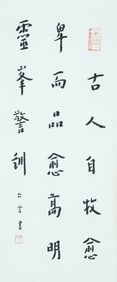 古人自牧愈
卑而品愈高明
靈峯警訓